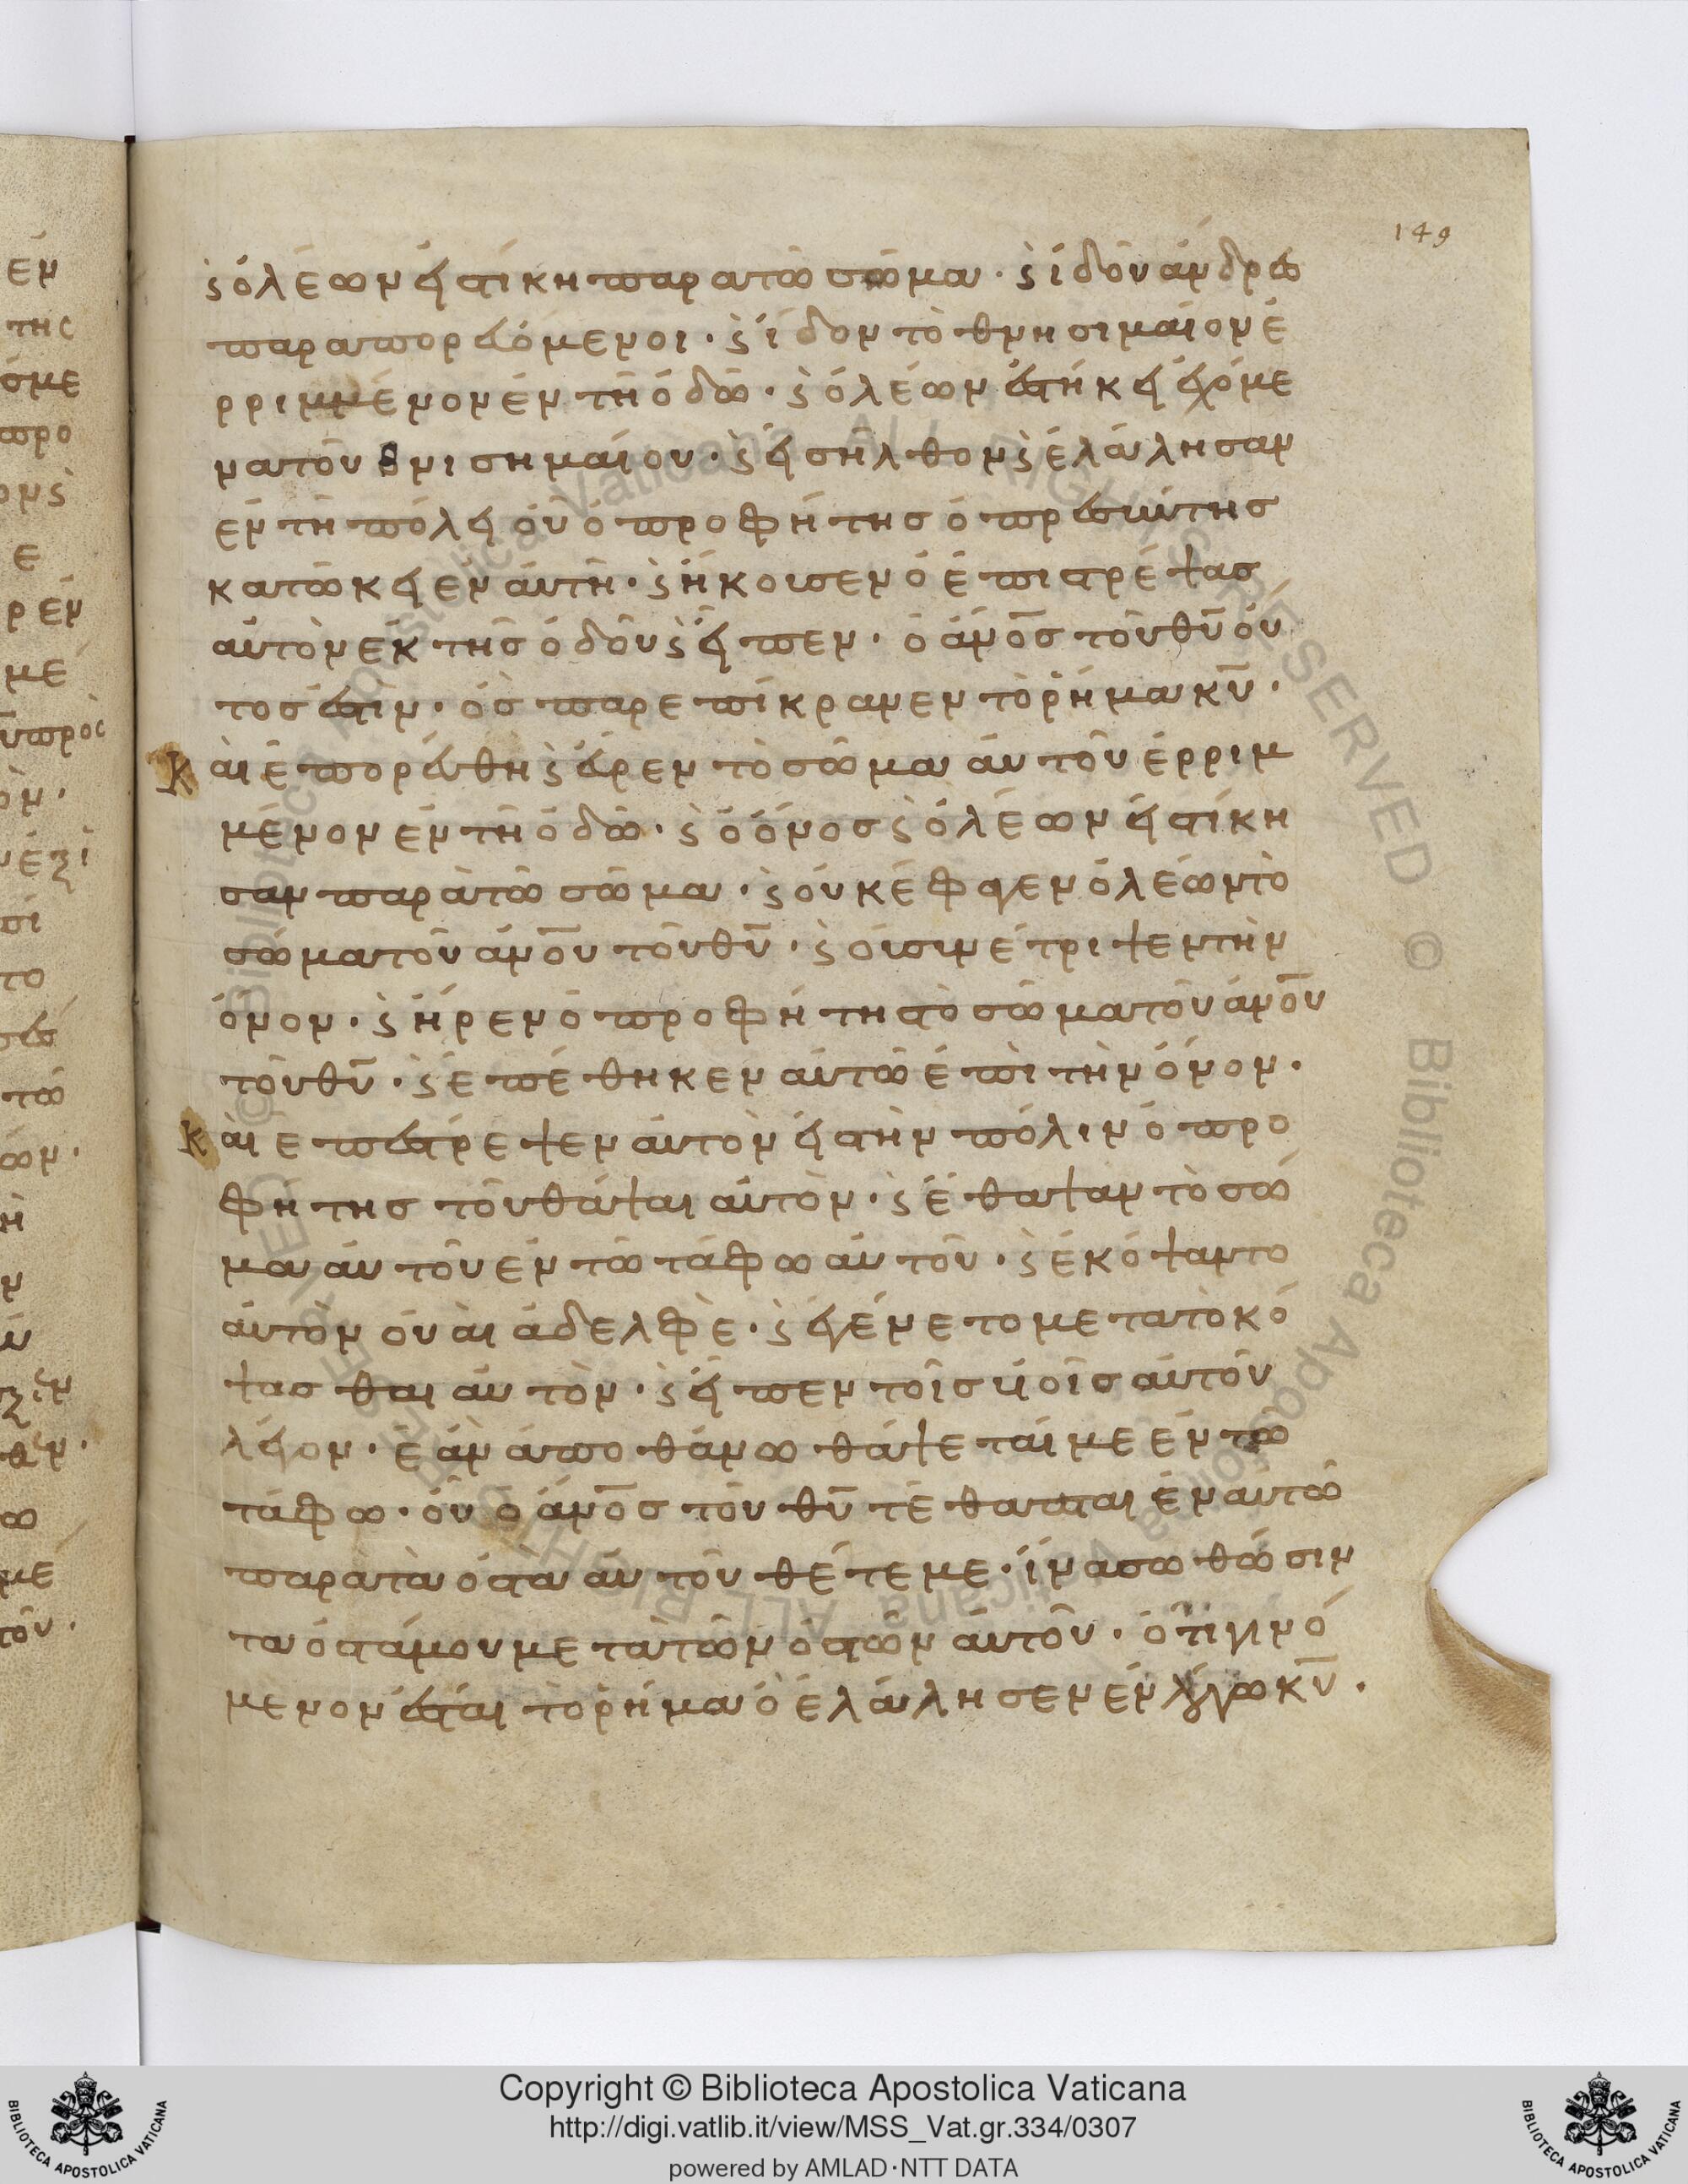 149
ϛ ὁ λέων εἱστίκη παρα τῶ σῶμα · ϛ ἰδοῦ ἄνδρες
παραπορευόμενοι · ϛ ίδον τὸ θνησιμαῖον ἐ
ρριμμένον ἐν τῆ ὁδῶ · ϛ ὁ λέων ἑστήκει ἐχόμε
να τοῦ θνισημαίου · ϛ εἰσῆλθον ϛ ἐλάλησαν
ἐν τῆ πόλει οὗ ὁ προφήτησ ὁ πρεσβύτησ
κατῶκει ἐν αὐτῆ · ϛ ἤκουσεν ὁ ἐπιστρέψασ
αὐτὸν ἐκ τῆσ ὁδοῦ ϛ εἶπεν · ὁ ἄν̅ο̅σ τοῦ θ̅υ̅ οὗ
τοσ ἐστὶν · ὁσ παρεπίκρανεν τὸ ῥήμα κ̅υ̅ ·
Καὶ ἐπορεύθη ϛ εὗρεν τὸ σῶμα αὐτοῦ ἐρριμ
μένον ἐν τῆ ὁδῶ · ϛ ὁ ὄνοσ ϛ ὁ λέων εἱστίκη
σαν παρὰ τῶ σῶμα · ϛ οὐκ έφαγεν ὁ λέων τὸ
σώμα τοῦ ἀν̅ο̅υ τοῦ θ̅υ̅ · ϛ οὐ συνέτριψεν τὴν
ὄνον · ϛ ἦρεν ὁ προφήτησ τὸ σῶμα τοῦ ἀν̅ο̅υ
τοῦ θ̅υ̅ · ϛ ἐπέθηκεν αὐτῶ ἐπὶ τὴν ὄνον ·
Καὶ ἐπέστρεψεν αὐτὸν εἰσ τὴν πόλιν ὁ προ
φήτησ τοῦ θάψαι αὐτὸν · ϛ ἔθαψαν τὸ σώ
μα αὐτοῦ ἐν τῶ τάφω αὐτοῦ · ϛ ἐκόψαντο
αὐτὸν οὐαὶ ἀδελφὲ · ϛ ἐγένετο μετα τὸ κό
ψασθαι αὐτὸν · ϛ εἶπεν τοῖσ υἱοῖσ αὐτοῦ
λέγον · ἐὰν ἀποθάνω θάψεταί με ἐν τῶ
τάφω · οὗ ὁ ἄν̅ο̅σ τοῦ θ̅υ̅ τέθαπται ἐν αὐτῶ
παρὰ τὰ ὀστα αὐτοῦ θέτε με · ἵνα σωθώσιν
τα ὀστά μου μετὰ τῶν ὀστῶν αὐτοῦ · ὅτι γινό
μενον ἔσται τὸ ῥήμα ὃ ἐλάλησεν ἐν λόγω κ̅υ̅ ·
Copyright © Biblioteca Apostolica Vaticana
http://digi.vatlib.it/view/MSS_Vat.gr.334/0307
powered by AMLAD·NTT DATA